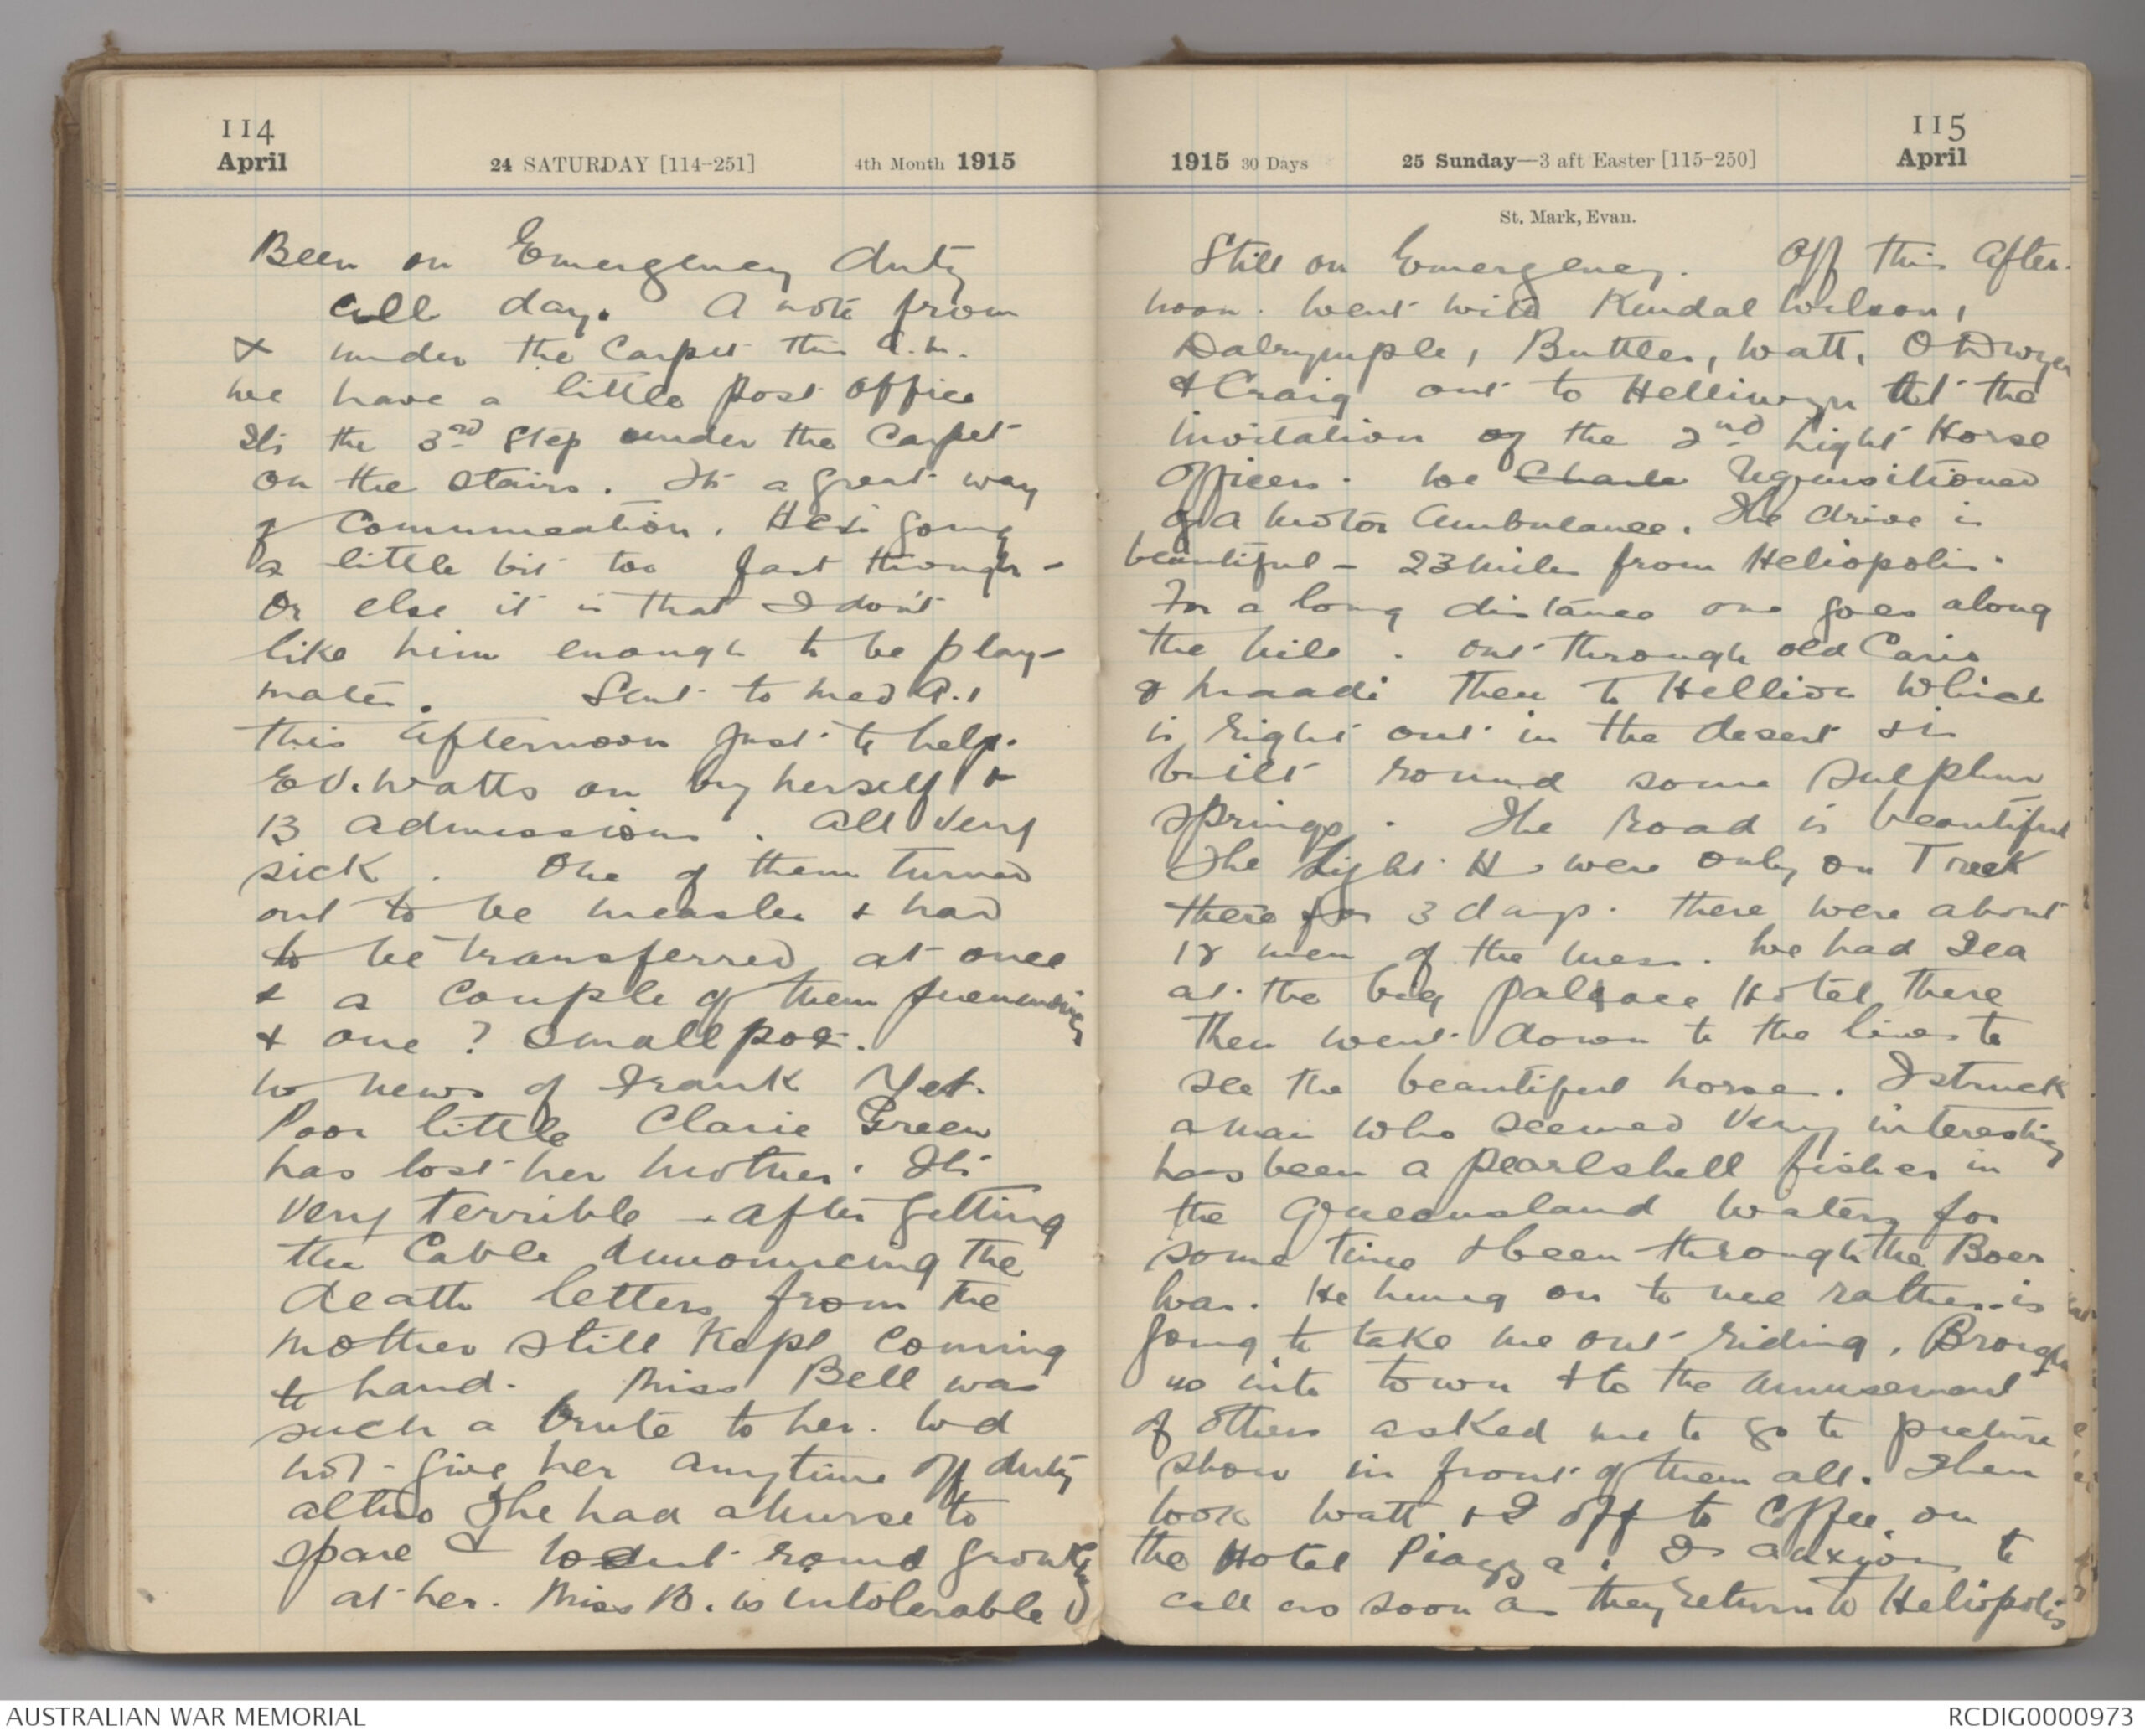 114
April
24 SATURDAY [114-251]
4th Month 1915
Been on Emergency duty
all day. A note from
x under the Carpet this a.m.
we have a little post office
Its the 3rd Step under the Carpet
on the stairs. Its a great way
of Communication. He's going
a little bit too fast though -
Or else it is that I don't
like him enough to be play-
mates. Sent to Med A.1
this afternoon just to help.
E V. Watts on by herself &
13 admissions. All very
sick. One of them turned
out to be measles & had
to be transferred at once
& a couple of them pneumonia
& one ? Small pox.
No news of Frank Yet.
Poor little Clarie Green
has lost her mother. Its
very terrible - after getting
the Cable announcing the
death letters from the
mother still Kept coming
to hand. Miss Bell was
such a brute to her. Wd
not give her anytime off duty
altho She had a nurse to
spare & went round growling
at her. Miss B. is intolerable
1915 30 Days
25 Sunday—3 aft Easter [115-250]
115
April
St. Mark, Evan.
Still on Emergency. Off this After-
noon. Went with Kendal Wilson,
Dalrymple, Buttler, Watt, O Dwyer
& Craig out to Helliwyn At the
invitation of the 2nd Light Horse
Officers. We requisitioned
of a motor Ambulance. The drive is
beautiful - 23 miles from Heliopolis.
For a long distance one goes along
the Nile. Out through old Cario
& Maadi then to Hellion Which
is right out in the desert & is
built round some sulphur
springs. The road is beautiful
The Light H were only on Treck
there for 3 days. There were about
18 men of the mess. We had Tea
at the big palace Hotel there
then went down to the lines to
see the beautiful horses. I struck
a man who seemed very interesting
has been a pearlshell fisher in
the Queensland Waters for
some time & been through the Boer
War. He hung on to me rather - is
going to take me out riding. Brought
us into town & to the amusement
of others asked me to go to picture
show in front of them all. Then
took Watt & I off to Coffee on
the Hotel Piazza. Is anxious to
call as soon as they return to Heliopolis
AUSTRALIAN WAR MEMORIAL
RCDIG0000973